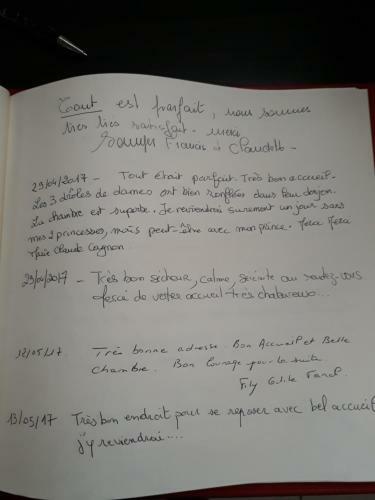 Tout est parfait, nous sommes
très très satisfait. merci
Francis et Claudette.
29/04/2017 - Tout était parfait. Très bon accueil.
Les 3 drôles de dames ont bien ronflées dans leur donjon.
La chambre est superbe. Je reviendrai surement un jour sans
mes 2 princesses, mais peut-être avec mon prince.
Marie Claude Gagnon
29/04/2017 - Très bon séjour, calme, sérénité au rendez-vous
de votre accueil très chaleureux...
12/05/17. Très bonne adresse. Bon Accueil et Belle
chambre. Bon courage pour la suite.
13/05/17 Très bon endroit pour se reposer avec bel accueil
j'y reviendrai....